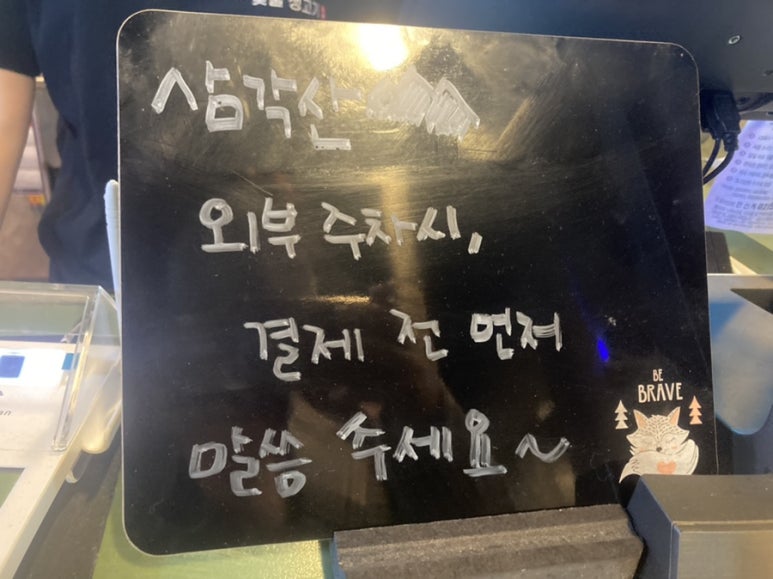 삼각산
외부 주차시,
결제 전 먼저
말씀 주세요~
BE
BRAVE